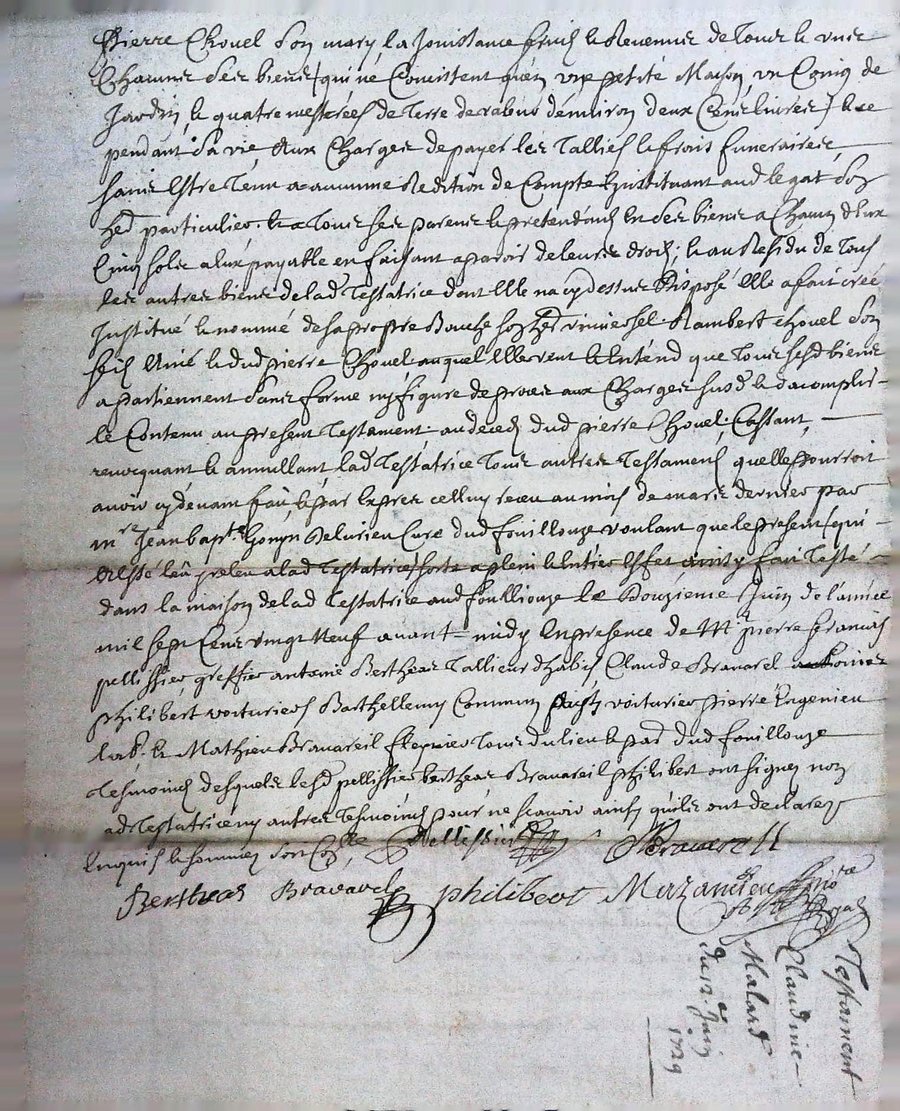 Pierre Chovel son mary, la Jouissance fruicts & Revennus de Tous & uns
Chacuns ses biens (qui ne Concistent qu'en une petite Maison, un Coing de
Jardin, & quatre mestrées de Terre de rabus d'environ deux Cens livres) & ce
pendant sa vie, Aux Charges de payer les Tallies & frais funeraires,
sans Estre Tenu a aucunne Redition de Compte L'instituant aud legat son
hed particulier. & a Tous ses parens & prétendants En ses biens a Chacun d'eux
Cinq sols a eux payable en faisant aparoir de leurs droits; & au Residu de Tous
les autres biens de lad Testatrice dont Elle na cydessus Disposé Elle a fait créé
Institué & nommé de sa propre Bouche son hed universel Rambert Chovel son
fils & dud pierre Chovel auquel Elle veut & Entend que Tous sesd biens
apartiennent sans forme ny figure de proces aux Charges susd & d'acomplir
le Contenu au present Testament au deced dud pierre Chovel. Cassant,
revocquant & annullant, lad Testatrice Tous autres Testaments quelle pourroit
avoir cydevant fait, & par Expres celluy receu au mois de mars dernier par
mre Jean bapte Gonyn Delurieu Curé dud fouillouze voulant que le present (qui
a Esté leu & releu a lad Testatrice) sorte a plein & Entier Effet ainsy fait Testé
dans la maison de lad Testatrice aud fouillouze Le Douzieme Juin de l'année
mil sept Cens vingt Neuf avant midy En presence de Mr pierre francois
pellissier greffier antoine Bertheas Tallieur d'habits Claude Bravarel
philibert voituriers Barthellemy Commun voiturier pierre Eugenieu
lab. & Mathieu Bravareil Tous du lieu & par dud fouillouze
Tesmoins desquels lesd pellissier bertheas Bravareil philibert ont signés non
lad Testatrice ny autres Tesmoins pour ne scavoir ainsy qu'ils ont declarez
Enquis & sommés
Pellissier Bravarell
Bertheas Bravarel philibert Mazandieu Nore Royal
Testament
Claudine
Malard
du 12e Juin
1729